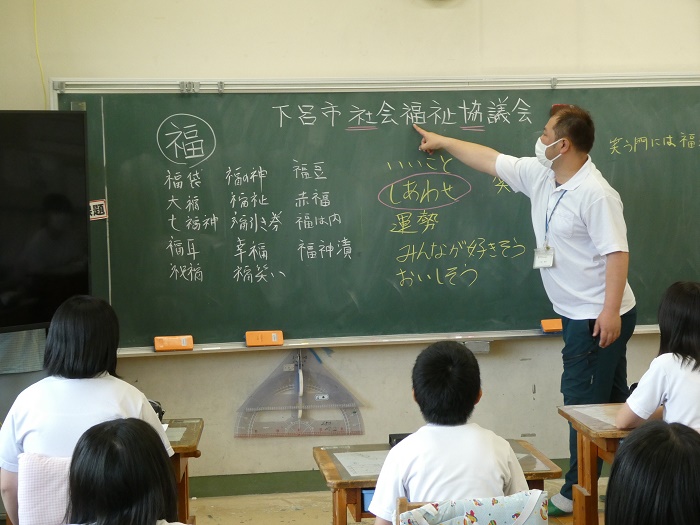 下呂市 社会福祉協議会
福
福袋 福の神 福豆
大福 福祉 赤福
七福神 福引き券 福は内
福耳 幸福 福神漬
祝福 福笑い
いいこと
しあわせ
運勢
みんなが好きそう
おいしそう
笑
笑う門には福
題